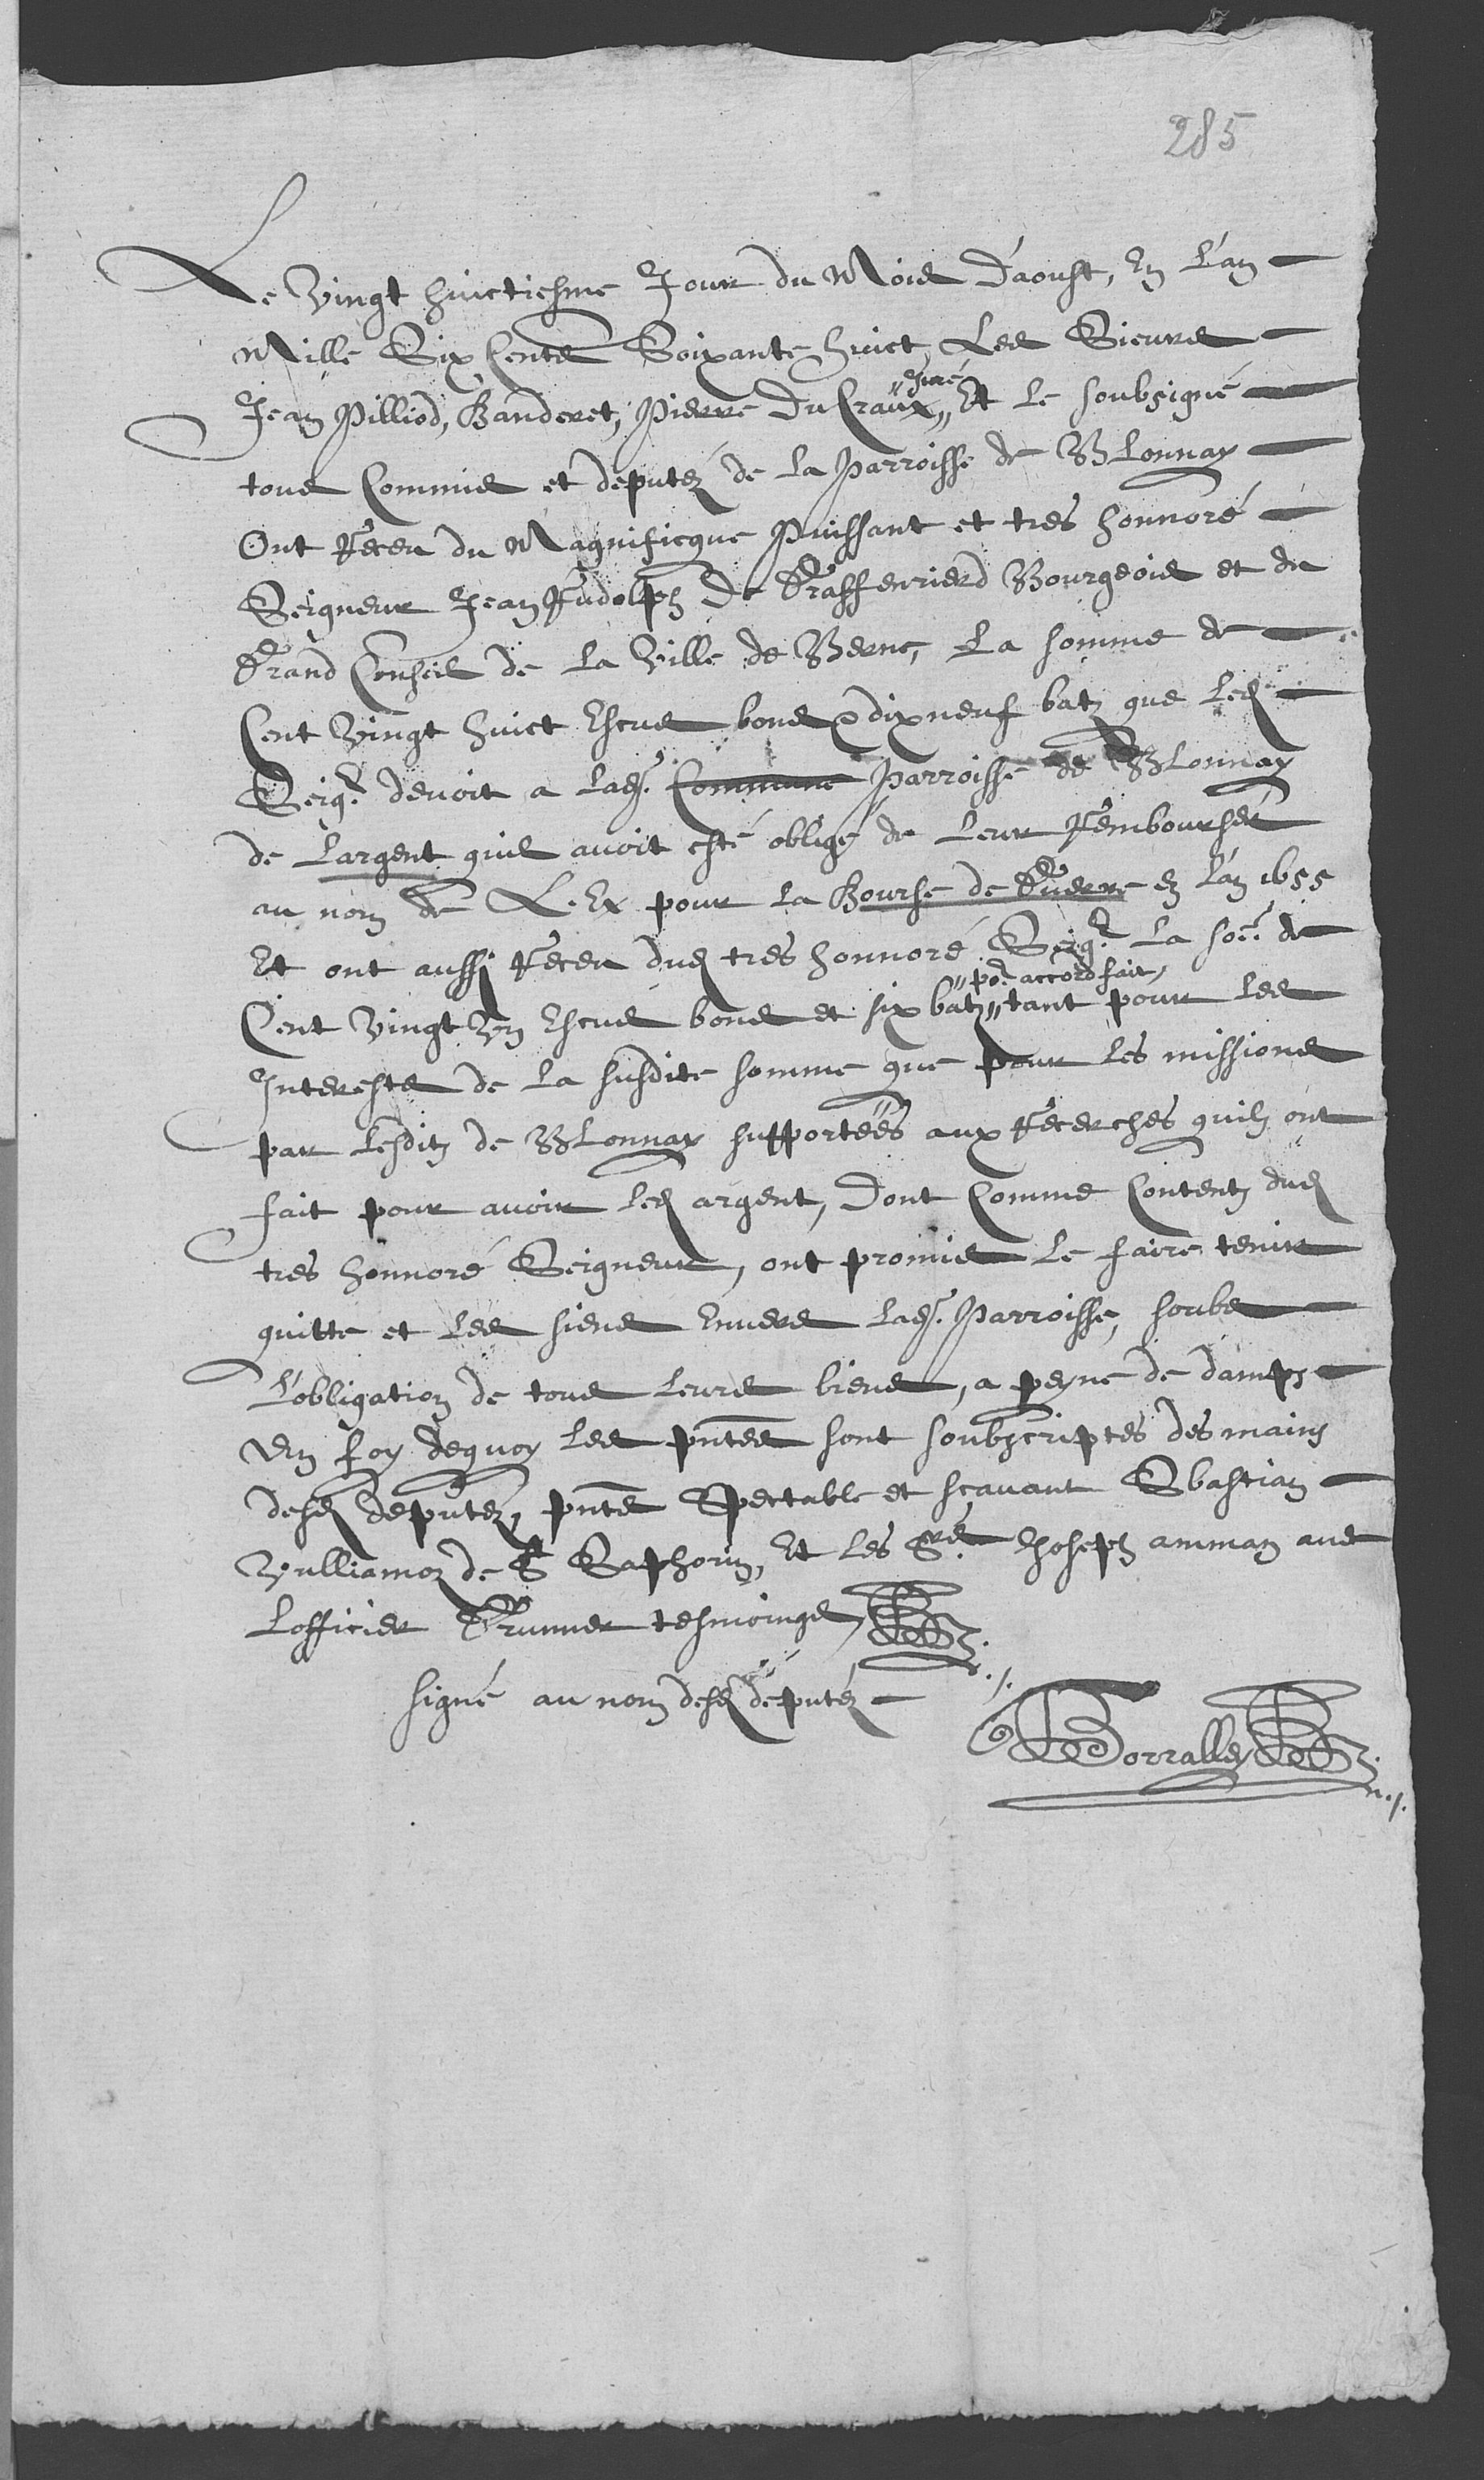 285
Le Vingt huictiesme Jour du Mois D'aoust, En l'an
Mille Six Cents Soixante huict, Les Sieurs
Jean Pilliod, Banderet, Pierre Du Craux, "Juré" Et le soubsigné
tous Commis et deputéz de la Parroisse de Blonnay
Ont Receu du Magnificque Puissant et tres honnoré
Seigneur Jean Rudolph De Graffenrierd Bourgeois et du
Grand Conseil de la Ville de Berne, La somme de
Cent Vingt huict Escus bons & dixneuf batz que led
Seigr. devoit a lade. Commune Parroisse de Blonnay
de Largent quil avoit esté obligé de Leur Rembourser
au nom de L. Ex pour la Bourse de Guerre en l'an 1655
Et ont aussi Receu dud tres honnoré Seigr. La soe. de
"por. accord fait,
Cent Vingt Un Escus bons et six batz" tant pour les
Interests de la susdite somme que pour les missions
par lesditz de Blonnay supportées aux Recerches quilz ont
fait pour avoir led argent, Dont Comme Contentz dud
tres honnoré Seigneur, ont promis Le faire tenir
quitte et les siens Envers lade. Parroisse, soubs
L'obligation de tous leurs biens, a peyne de damps
En foy dequoy les pntes sont soubscriptes des mains
desd deputéz, pnts Spectable et scavant Sbastian
Vulliamoz de St Saphorin, Et les Srs. Joseph amman aus
Lofficier Brunner tesmoings
signé au nom desd deputéz
Borralley